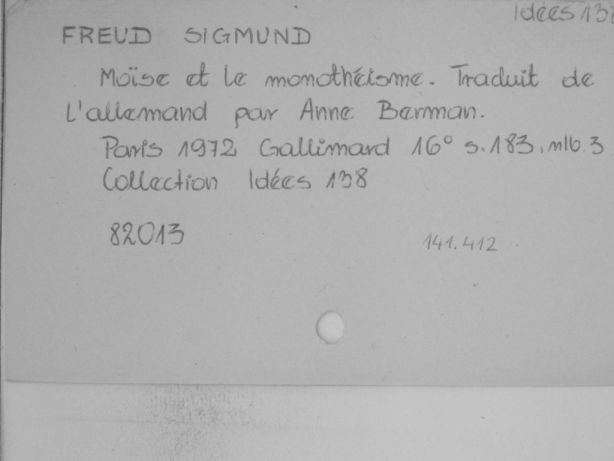 Idées 138
FREUD SIGMUND
Moïse et le monothéisme. Traduit de
l'allemand par Anne Berman.
Paris 1972 Gallimard 16° s.183, nlb.3
Collection Idées 138
82013
141.412